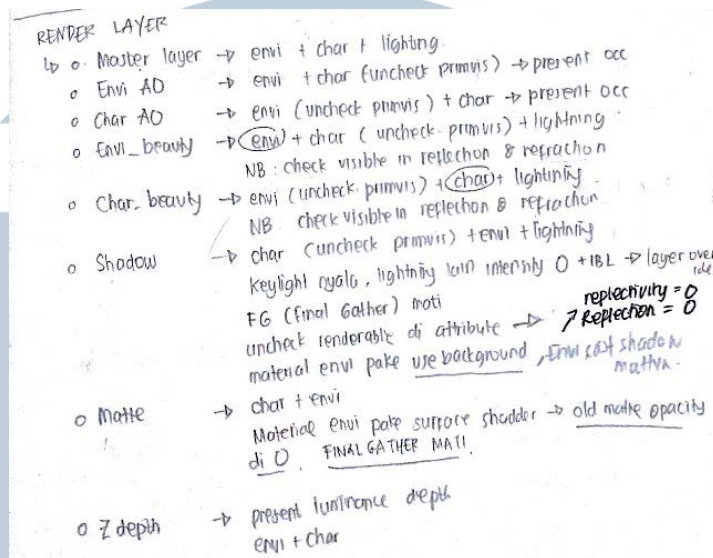 RENDER LAYER
↳ o Master layer → envi + char + lighting.
o Envi AO → envi + char (uncheck primvis) → present occ
o Char AO → envi (uncheck primvis) + char → present occ
o Envi_beauty → envi + char (uncheck primvis) + lightning :
NB : check visible in reflection & refraction
o Char_beauty → envi (uncheck primvis) + char + lightning.
NB check visible in reflection & refraction
o Shadow → char (uncheck primvis) + envi + lightning
keylight nyala, lightning lain intensity 0 + IBL → layer over
ide
FG (Final Gather) mati
uncheck renderable di attribute → ↗ replectivity = 0
Replection = 0
material envi pake use background, Envi cast shadow
o Matte → char + envi
Material envi pake surface shadder → old matte opacity
di 0. FINAL GATHER MATI.
o Z depth → present luminance depth
envi + char